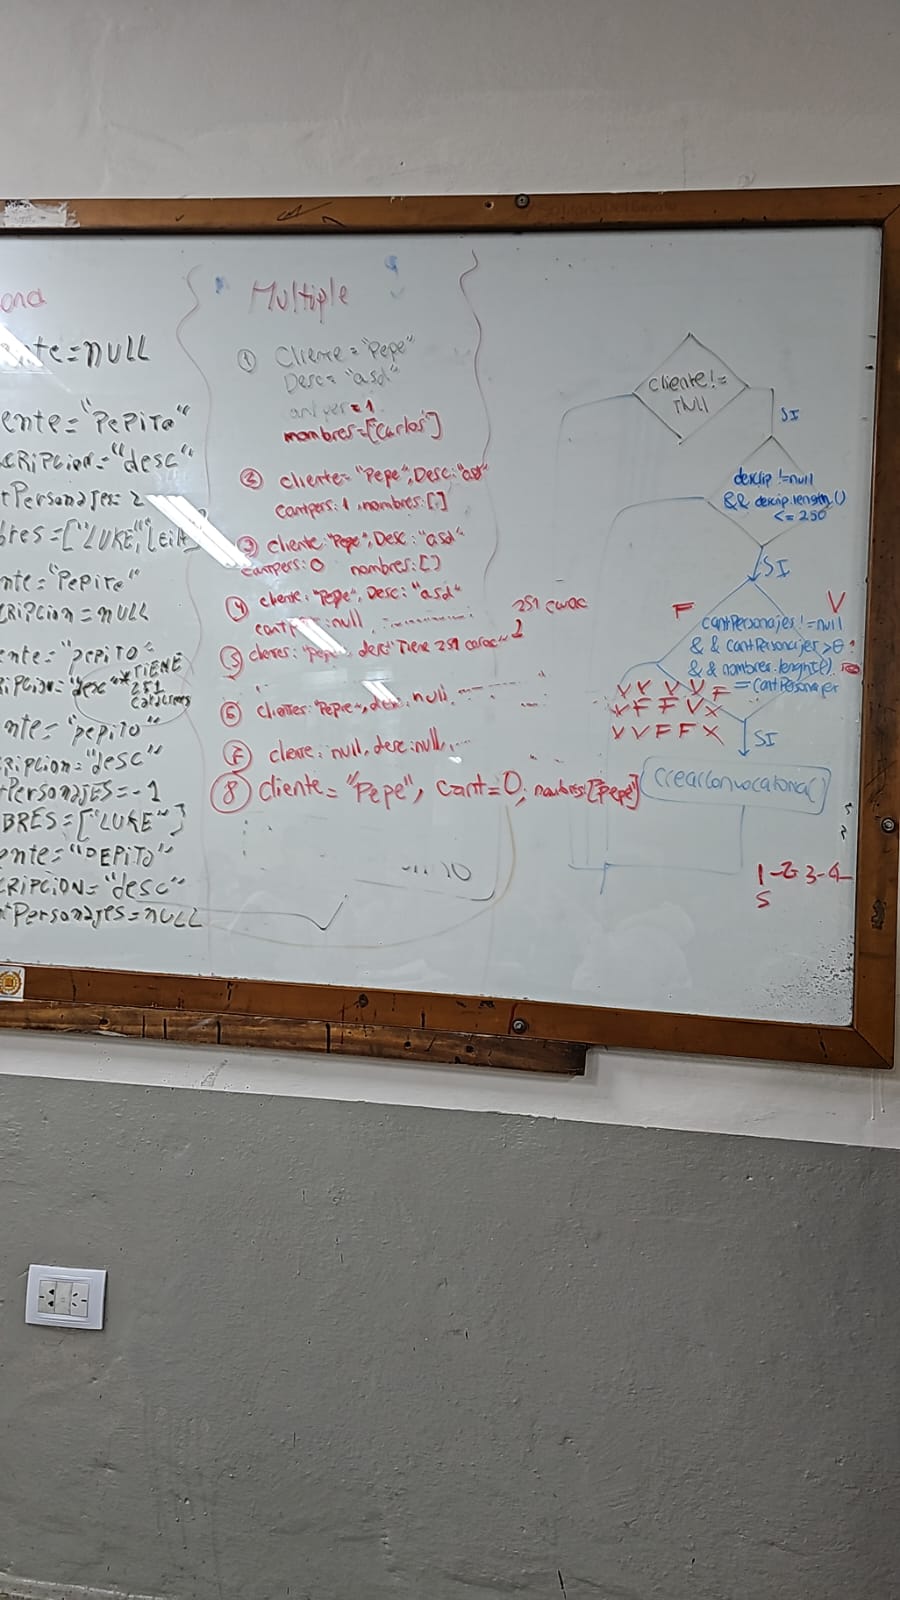 ond
nte=NULL
ente="PePiTo"
CRiPCion="desc"
tPersonajes=2
bres=["LUKE",
nte="PePiTo"
CRiPCion=NULL
ente="pepiTo"
iPCion="desc" *TIENE
251
nte="pepiTo"
CRiPCion="desc"
PersonAJES=-1
BRES=["LUKE"]
ente="PEPiTo"
CRiPCiON="desc"
tPersonajes=NULL
Multiple
① Cliente="Pepe"
Desc="asd"
cantper=1
nombres=[Carlos"]
② cliente="Pepe", Desc:"asd"
cantpers:1, nombres:[]
③ cliente:"Pepe", Desc:"asd"
cantpers:0 nombres:[]
④ cliente:"Pepe", Desc:"asd"
:null
251 carac
⑤ desc"Tiene 251 carac"
⑥ null
⑦ null, desc:null,
⑧ cliente="Pepe", cant=0, nombres:[Pepe"]
cliente!=
null
SI
descrip !=null
&& descrip.length()
<=250
SI
F V
cantPersonajes!=null
&& cantPersonajes>0
&& nombres.lenght()
==cantPersonajes
V V V V F
V F F V X
V V F F X
SI
CrearConvocatoria()
1-2 3-4
5